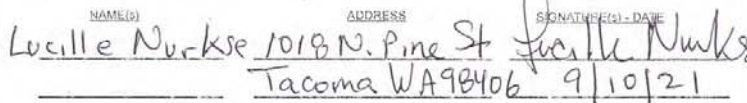 NAME(S) ADDRESS SIGNATURE(s) - DATE
Lucille Nurkse 1018 N. Pine St Lucille Nurks
Tacoma WA 98406 9/10/21